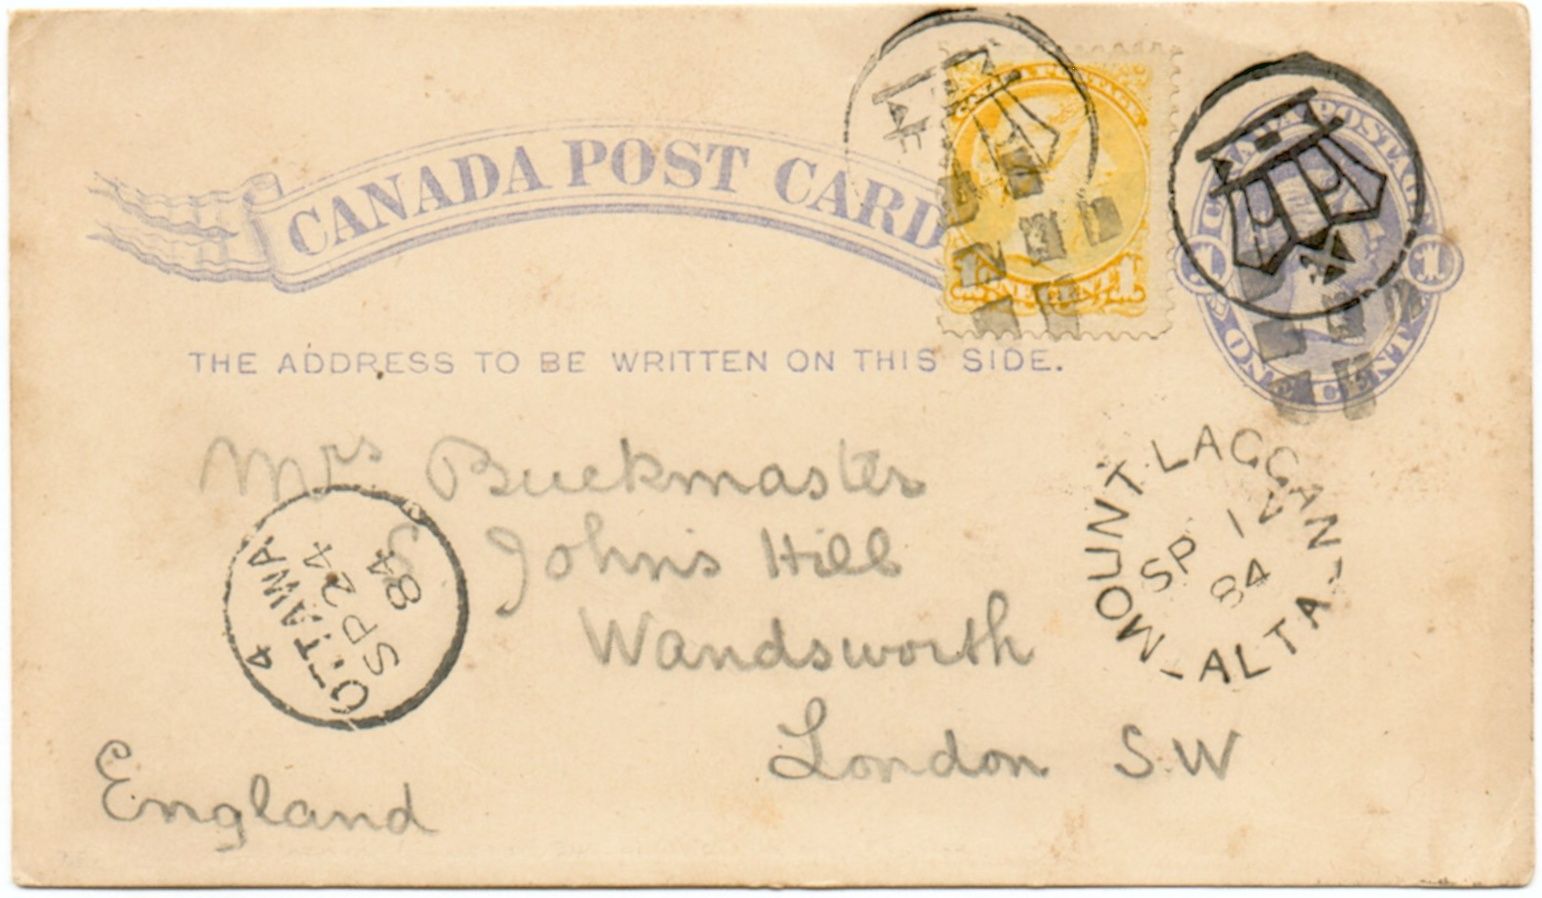 CANADA POST CARD
CANADA POSTAGE
1 ONE CENT 1
CANADA POSTAGE
1 ONE CENT 1
THE ADDRESS TO BE WRITTEN ON THIS SIDE.
Mrs Buckmaster
Johns Hill
Wandsworth
London SW
England
4
OTTAWA
SP 24
84
MOUNT LAGGAN
SP 12
84
ALTA